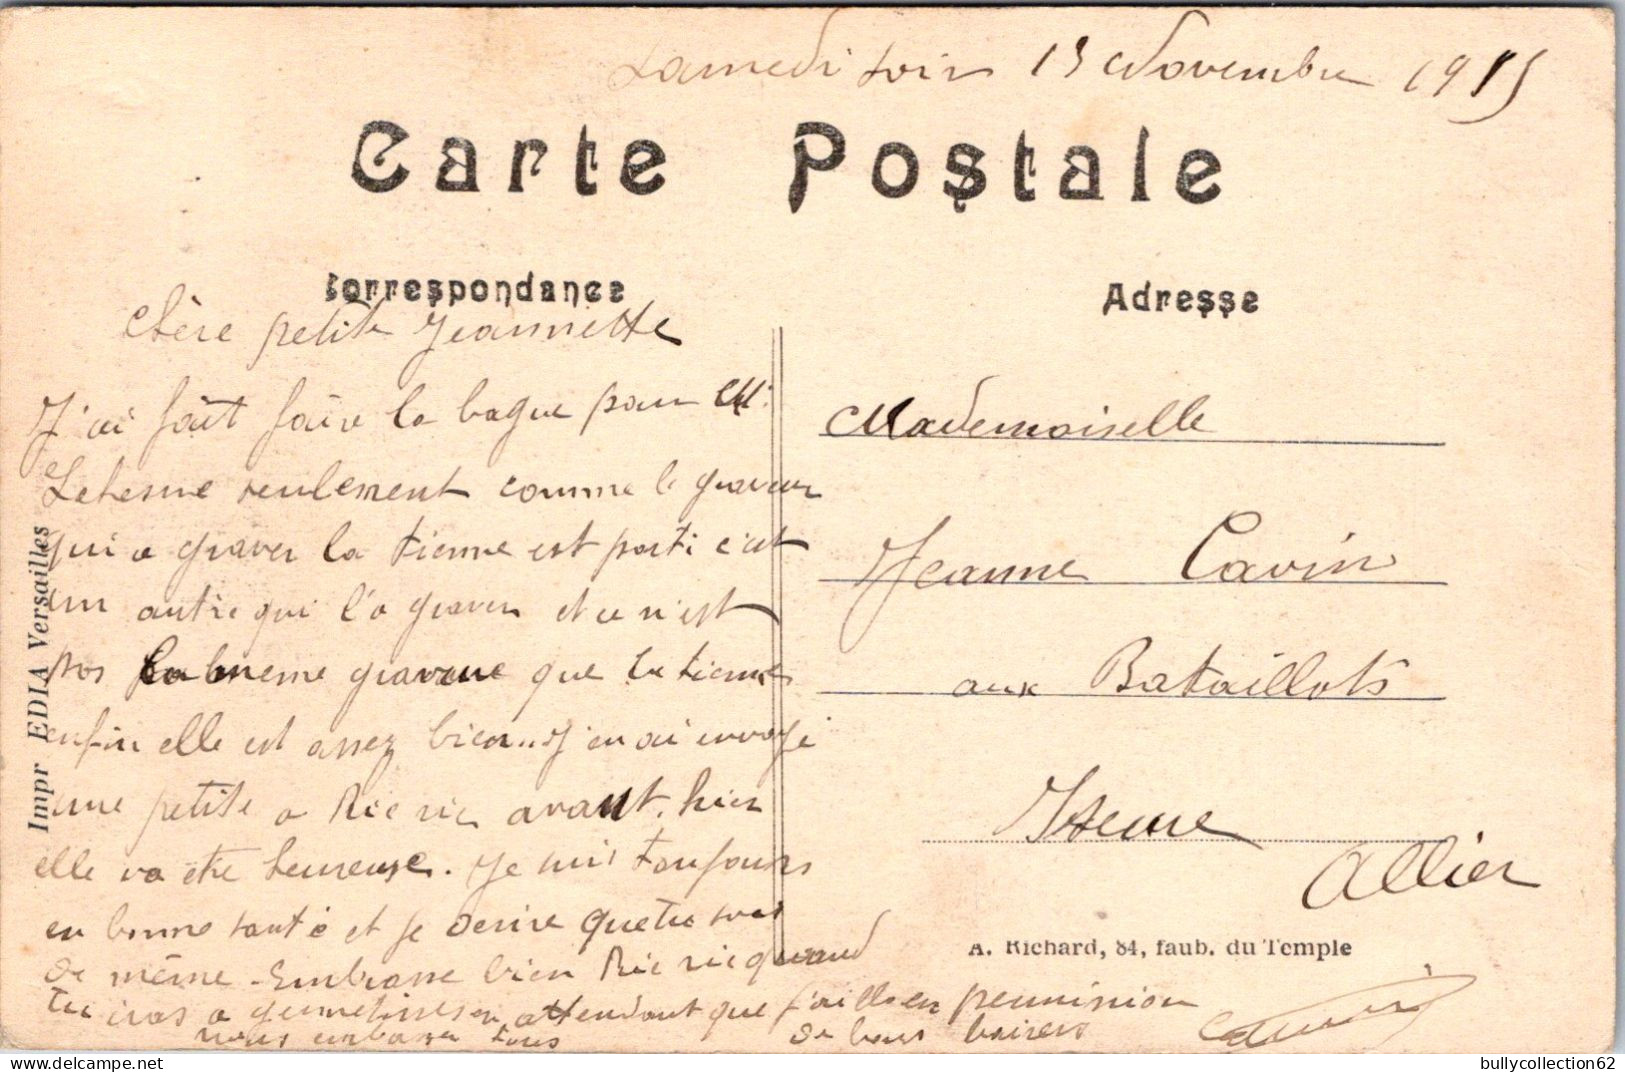 Samedi soir 13 Novembre 1915
Carte Postale
Correspondance
Adresse
Chère petite Jeannette
J'ai fait faire la bague pour Ml.
seulement comme le graveur
qui a graver la tienne est parti c'est
un autre qui l'a graver et ce n'est
pas la meme gravure que la tienne
enfin elle est assez bien.. J'en ai envoyé
une petite a Ric ric avant. hier
elle va être heureuse. Je suis toujours
en bonne santé et je desire que tu sois
de même. Embrasse bien Ric ric quand
tu iras a en attendant que j'aille en permission
vous embrasser tous
de bons baisers
Mademoiselle
Jeanne Cavin
aux Bataillots
Yzeure
Allier
A. Richard, 84, faub. du Temple
Impr EDIA Versailles
bullycollection62
delcampe.net